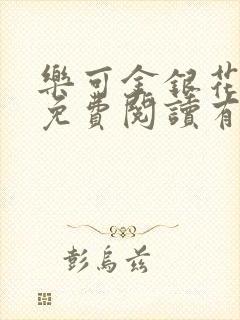 樂可金銀花
免費閱讀有
彭烏茲